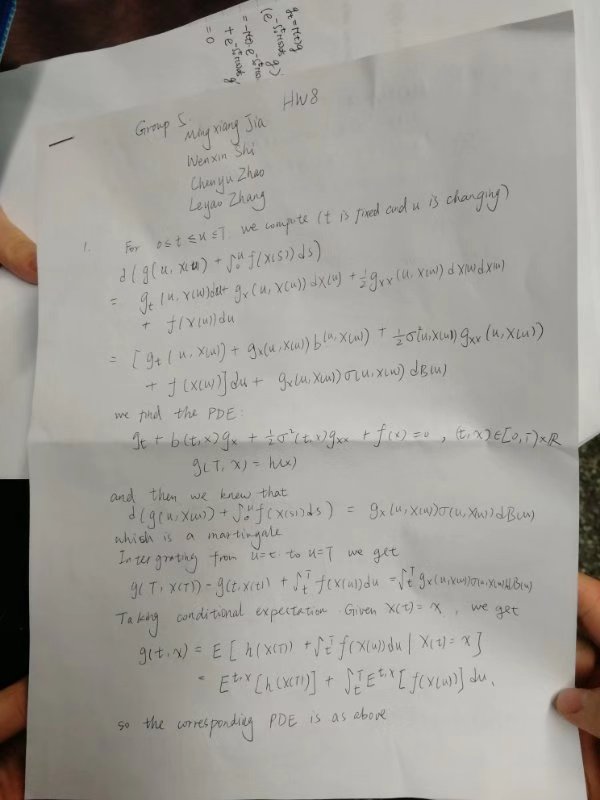 g_t = r(t)g
(e^{-∫_0^t r(s)ds} g)'
= -r(t) e^{-∫_0^t r(s)ds}
+ e^{-∫_0^t r(s)ds} g'
= 0
HW8
Group 5:
Mingxiang Jia
Wenxin Shi
Chenyu Zhao
Leyao Zhang
1. For 0≤t≤u≤T we compute (t is fixed and u is changing)
d(g(u, X(u)) + ∫_0^u f(X(s))ds)
= g_t(u, X(u))du + g_x(u, X(u))dX(u) + ½g_xx(u, X(u))dX(u)dX(u)
+ f(X(u))du
= [g_t(u, X(u)) + g_x(u, X(u))b(u, X(u)) + ½σ²(u, X(u))g_xx(u, X(u))
+ f(X(u))]du + g_x(u, X(u))σ(u, X(u))dB(u)
we find the PDE:
g_t + b(t,x)g_x + ½σ²(t,x)g_xx + f(x) = 0, (t,x)∈[0,T)×R
g(T, x) = h(x)
and then we knew that
d(g(u, X(u)) + ∫_0^u f(X(s))ds) = g_x(u, X(u))σ(u, X(u))dB(u)
which is a martingale
Intergrating from u=t to u=T we get
g(T, X(T)) - g(t, X(t)) + ∫_t^T f(X(u))du = ∫_t^T g_x(u, X(u))σ(u, X(u))dB(u)
Taking conditional expectation. Given X(t) = x, we get
g(t, x) = E[h(X(T)) + ∫_t^T f(X(u))du | X(t) = x]
= E^{t,x}[h(X(T))] + ∫_t^T E^{t,x}[f(X(u))]du.
so the corresponding PDE is as above